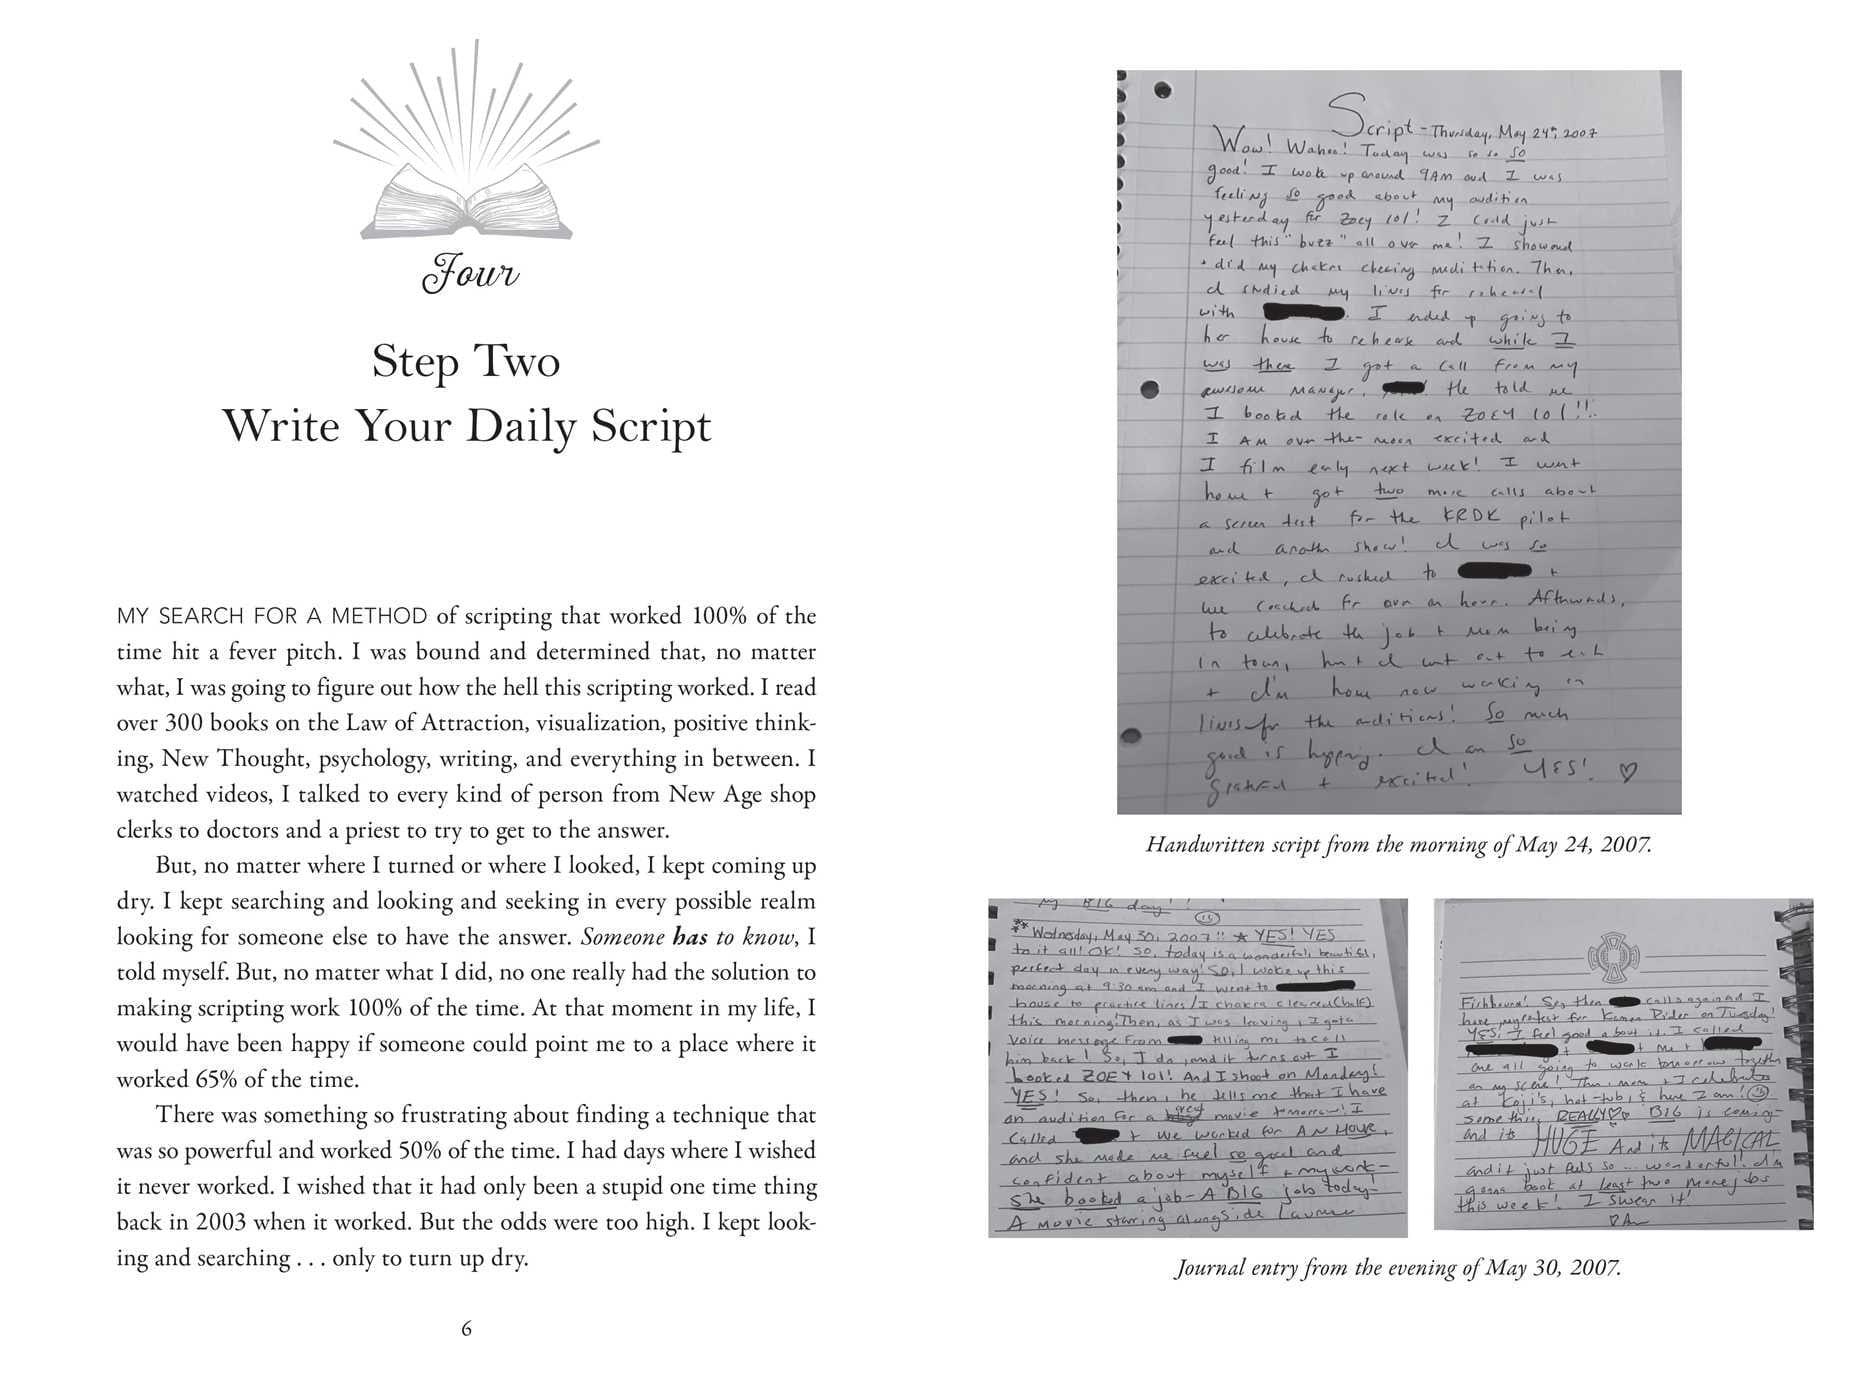 Four
Step Two
Write Your Daily Script
MY SEARCH FOR A METHOD of scripting that worked 100% of the
time hit a fever pitch. I was bound and determined that, no matter
what, I was going to figure out how the hell this scripting worked. I read
over 300 books on the Law of Attraction, visualization, positive think-
ing, New Thought, psychology, writing, and everything in between. I
watched videos, I talked to every kind of person from New Age shop
clerks to doctors and a priest to try to get to the answer.
But, no matter where I turned or where I looked, I kept coming up
dry. I kept searching and looking and seeking in every possible realm
looking for someone else to have the answer. Someone has to know, I
told myself. But, no matter what I did, no one really had the solution to
making scripting work 100% of the time. At that moment in my life, I
would have been happy if someone could point me to a place where it
worked 65% of the time.
There was something so frustrating about finding a technique that
was so powerful and worked 50% of the time. I had days where I wished
it never worked. I wished that it had only been a stupid one time thing
back in 2003 when it worked. But the odds were too high. I kept look-
ing and searching . . . only to turn up dry.
6
Script - Thursday, May 24th, 2007
Wow! Wahoo! Today was so so so
good! I woke up around 9AM and I was
feeling so good about my audition
yesterday for Zoey 101! I could just
feel this "buzz" all over me! I showered
+ did my chakra clearing meditation. Then,
I studied my lines for rehearsal
with I ended up going to
her house to rehearse and while I
was there I got a call from my
awesome manager, He told me
I booked the role on ZOEY 101!!!
I AM over-the-moon excited and
I film early next week! I went
home + got two more calls about
a screen test for the KRDK pilot
and another show! I was so
excited, I rushed to +
we coached for over an hour. Afterwards,
to celebrate the job + Mom being
in town, I went out to eat
+ I'm home now working on
lines for the auditions! So much
good is happening. I am so
grateful + excited! YES! ♡
Handwritten script from the morning of May 24, 2007.
my BIG day!
** Wednesday, May 30, 2007!! ★ YES! YES
to it all! OK! So, today is a wonderful, beautiful,
perfect day in every way! So, I woke up this
morning at 9:30 am and I went to
house to practice lines/I chakra cleared (half)
this morning! Then, as I was leaving, I got a
voice message from telling me to call
him back! So, I do, and it turns out I
booked ZOEY 101! And I shoot on Monday!
YES! So, then, he tells me that I have
an audition for a great movie tomorrow! I
called + we worked for AN HOUR,
and she made me feel so good and
confident about myself + my work-
She booked a job - A BIG job today!
A movie starring alongside Laurence
Fishburne! So, then calls again and I
have my test for Kamen Rider on Tuesday!
YES! I feel good about it. I called
+ + me +
are all going to work tomorrow together
on my scene! Then, mom + I celebrate
at Koji's, hot-tub, & here I am!
something REALLY♡♡ BIG is coming-
and its HUGE And its MAGICAL
and it just feels so ... wonderful! I'm
gonna book at least two money jobs
this week! I swear it!
Journal entry from the evening of May 30, 2007.